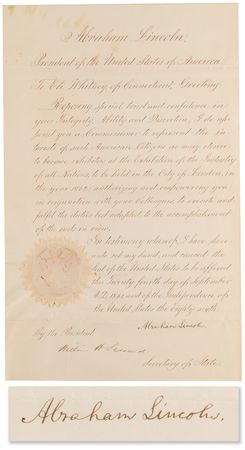 Abraham Lincoln,
President of the United States of America
To Eli Whitney of Connecticut, Greeting.
Reposing special trust and confidence in
your Integrity, Ability and Discretion, I do ap
point you a Commissioner to represent the in-
terests of such American Citizens as may choose
to become exhibitors at the Exhibition of the Industry
of all Nations, to be held in the City of London, in
the year 1862, authorizing and empowering you
in conjunction with your Colleagues to execute and
fulfil the duties best adapted to the accomplishment
of the end in view.
In testimony whereof, I have here-
unto set my hand, and caused the
Seal of the United States to be affixed
this Twenty fourth day of September
A.D. 1861 and of the Independence of
the United States the Eighty sixth
Abraham Lincoln.
By the President.
William H. Seward
Secretary of State.
Abraham Lincoln.